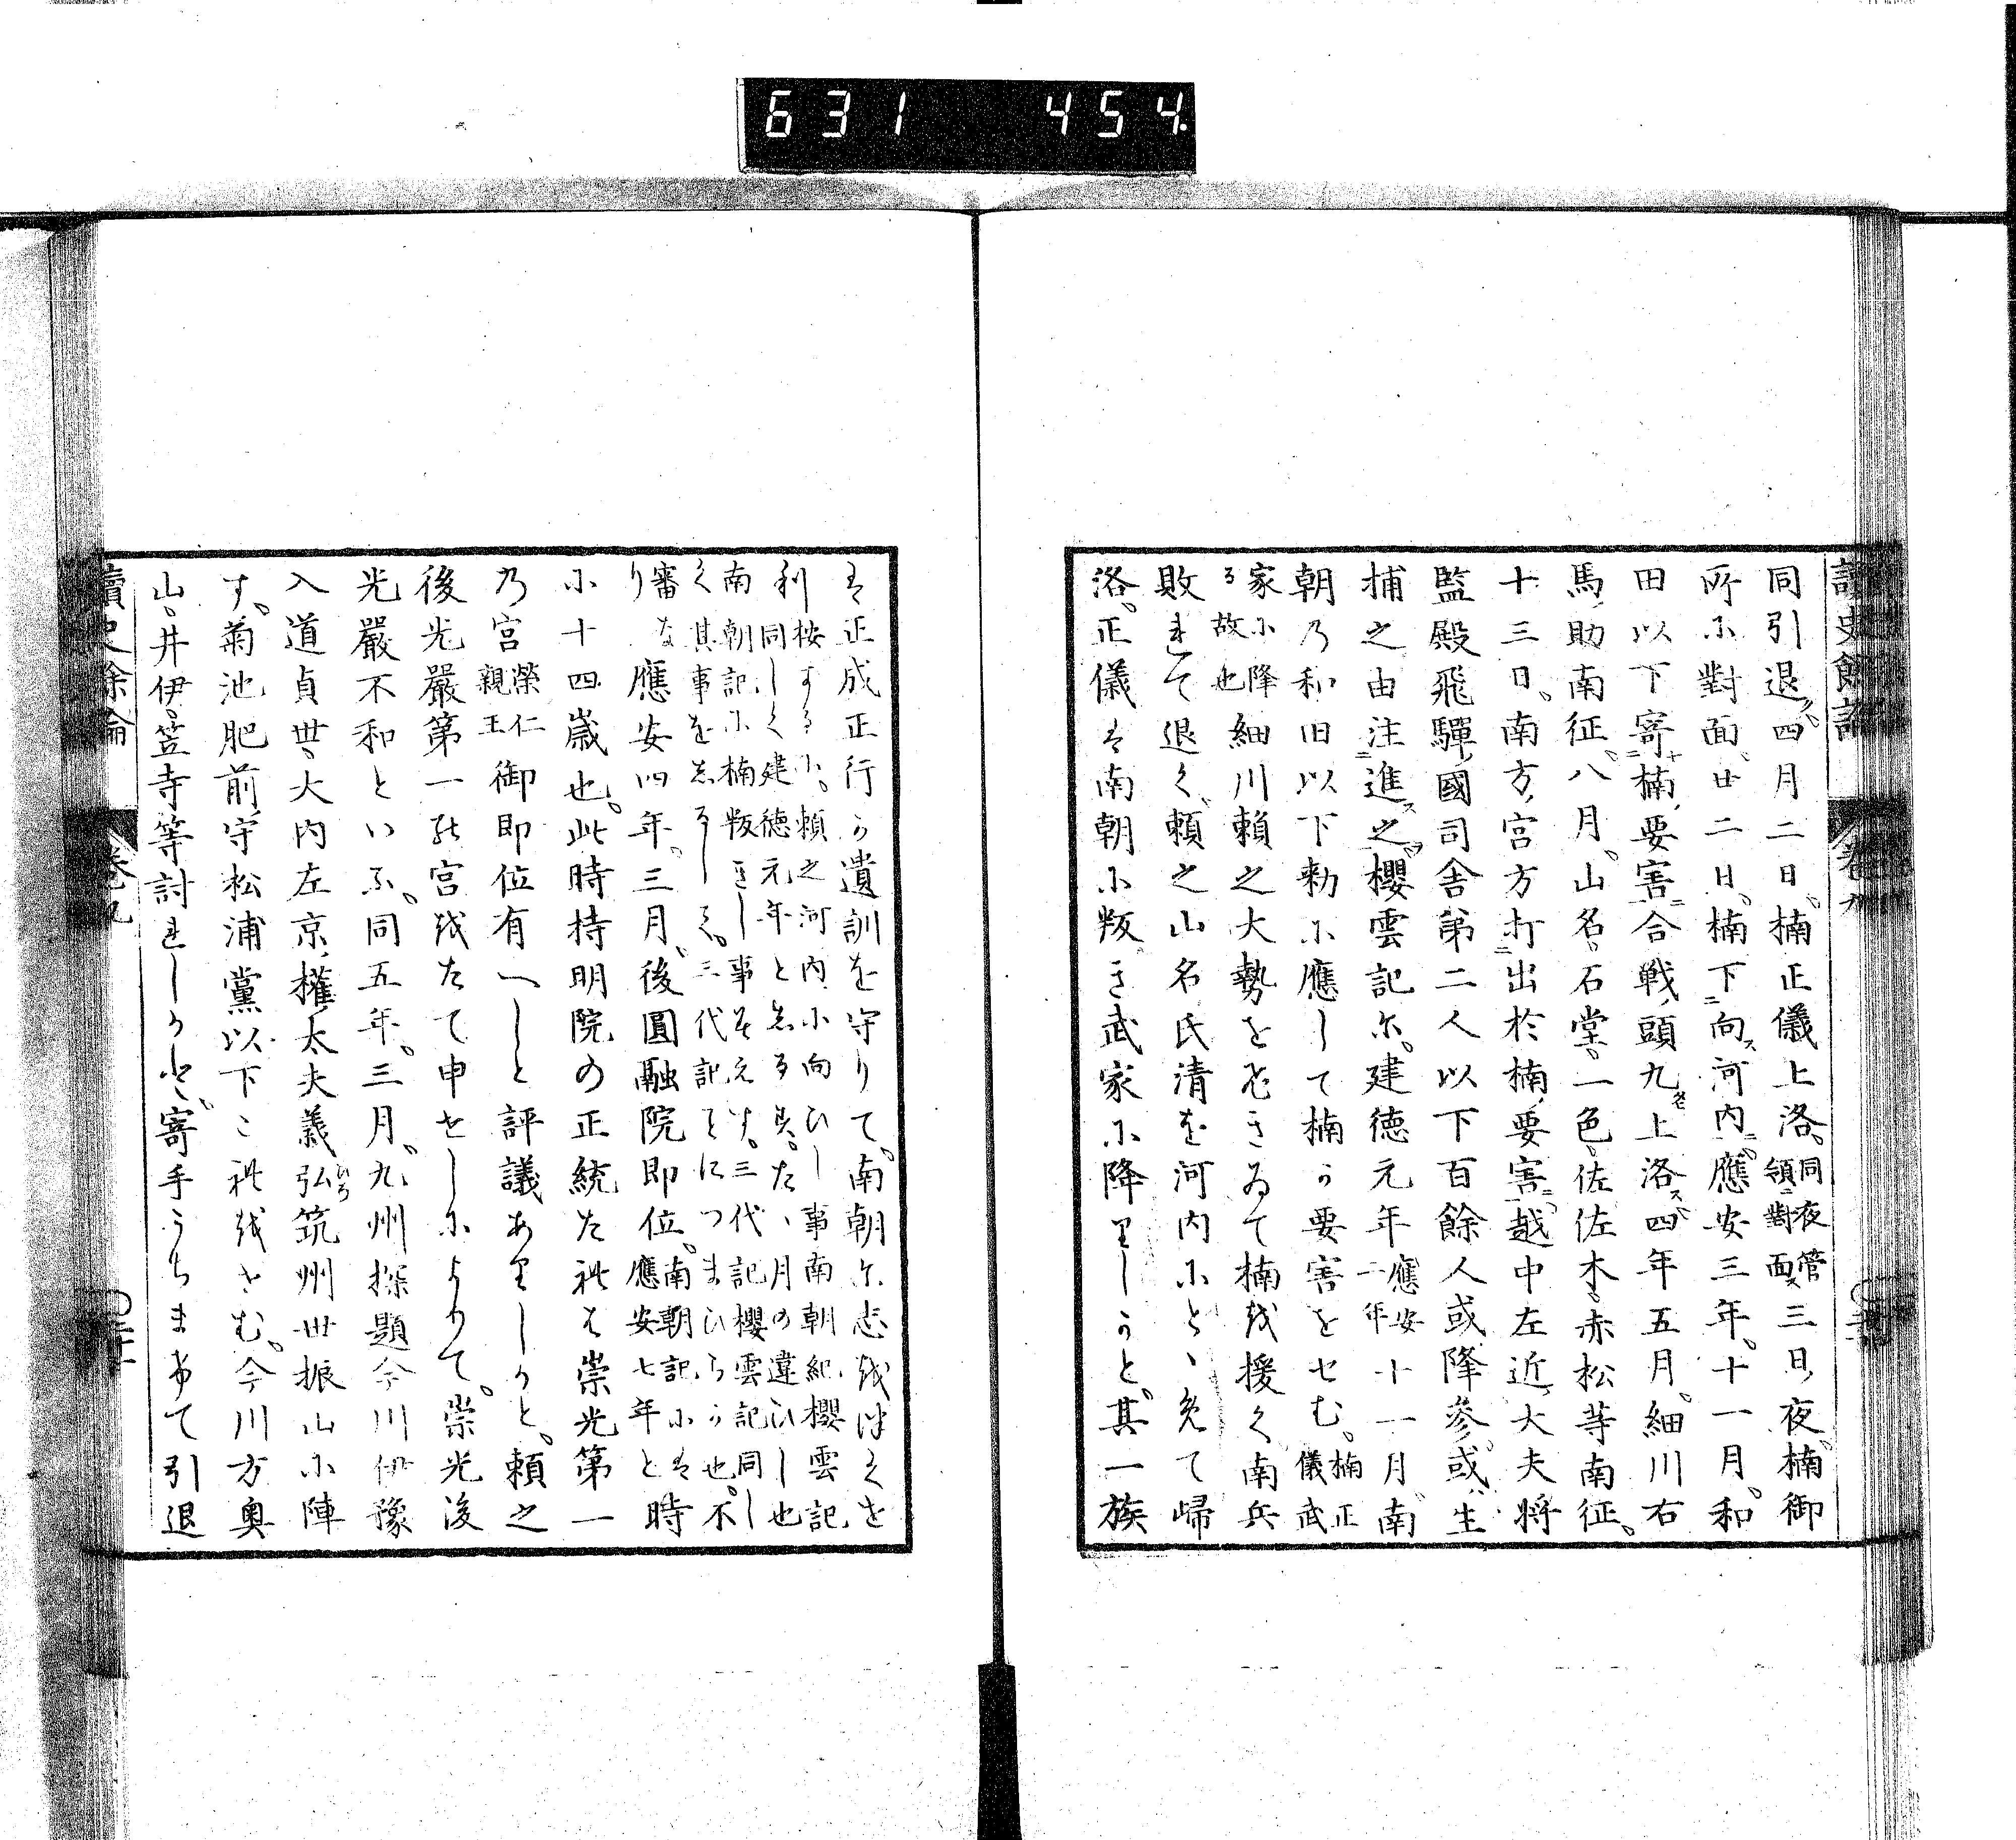 631 454
同引退ノハ四月二日楠正儀上洛同夜管領ニ對面ス三日夜楠御
所に對面廿二日楠下ニ向ス河内ニ應安三年十一月和
田以下寄ニ楠要害ニ合戦頭九上洛ス四年五月細川右
馬助南征八月山名石堂一色佐佐木赤松等南征
十三日南方宮方打ニ出於楠要害ニ越中左近大夫将
監殿飛騨國司舎第二人以下百餘人或降參或生
捕之由注進ス之櫻雲記に建德元年應安十一月南
朝乃和田以下勅に應して楠か要害をせむ楠正儀武
家に降る故也細川賴之大勢をひきゐて楠を援く南兵
敗れて退く賴之山名氏清を河内にとゝめて歸
洛正儀は南朝に叛き武家に降りしかと其一族
は正成正行か遺訓を守りて南朝に志をはくを
按するに賴之河内に向ひし事南朝紀櫻雲記
利同しく建德元年としる具たゝ月の違ひし也
南朝記に楠叛きし事は三代記櫻雲記同し
く其事をしるし三代記とにつまひらか也不
審なり應安四年三月後圓融院即位南朝記には應安七年と時
に十四歳也此時持明院の正統たれは崇光第一
乃宮榮仁親王御即位有へしと評議ありしかと賴之
後光嚴第一の宮をたて申せしによりて崇光後
光嚴不和といふ同五年三月九州探題今川伊豫
入道貞世大内左京權太夫義弘筑州世振山に陣
す菊池肥前守松浦黨以下これをせむ今川方奥
山井伊笠寺等討れしかと寄手うちまけて引退
讀史餘論 卷九